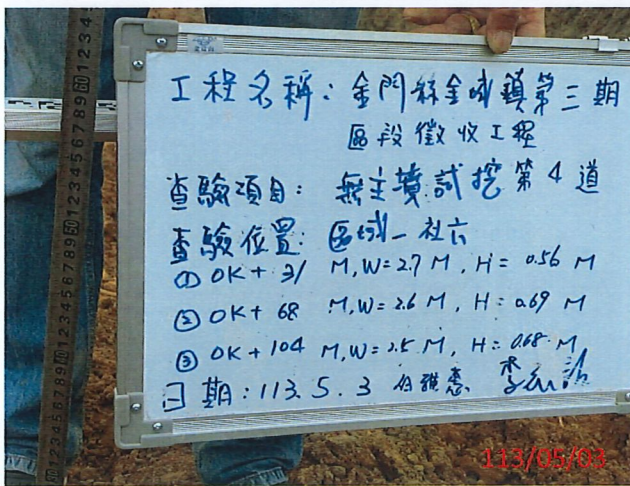 工程名稱：金門縣金城鎮第三期
區段徵收工程
查驗項目：無主墳試挖第4道
查驗位置：區域一社六
① 0K+31 M,W=2.7 M, H=0.56 M
② 0K+68 M,W=2.6 M, H=0.69 M
③ 0K+104 M,W=2.5 M, H=0.68 M
日期：113.5.3
113/05/03